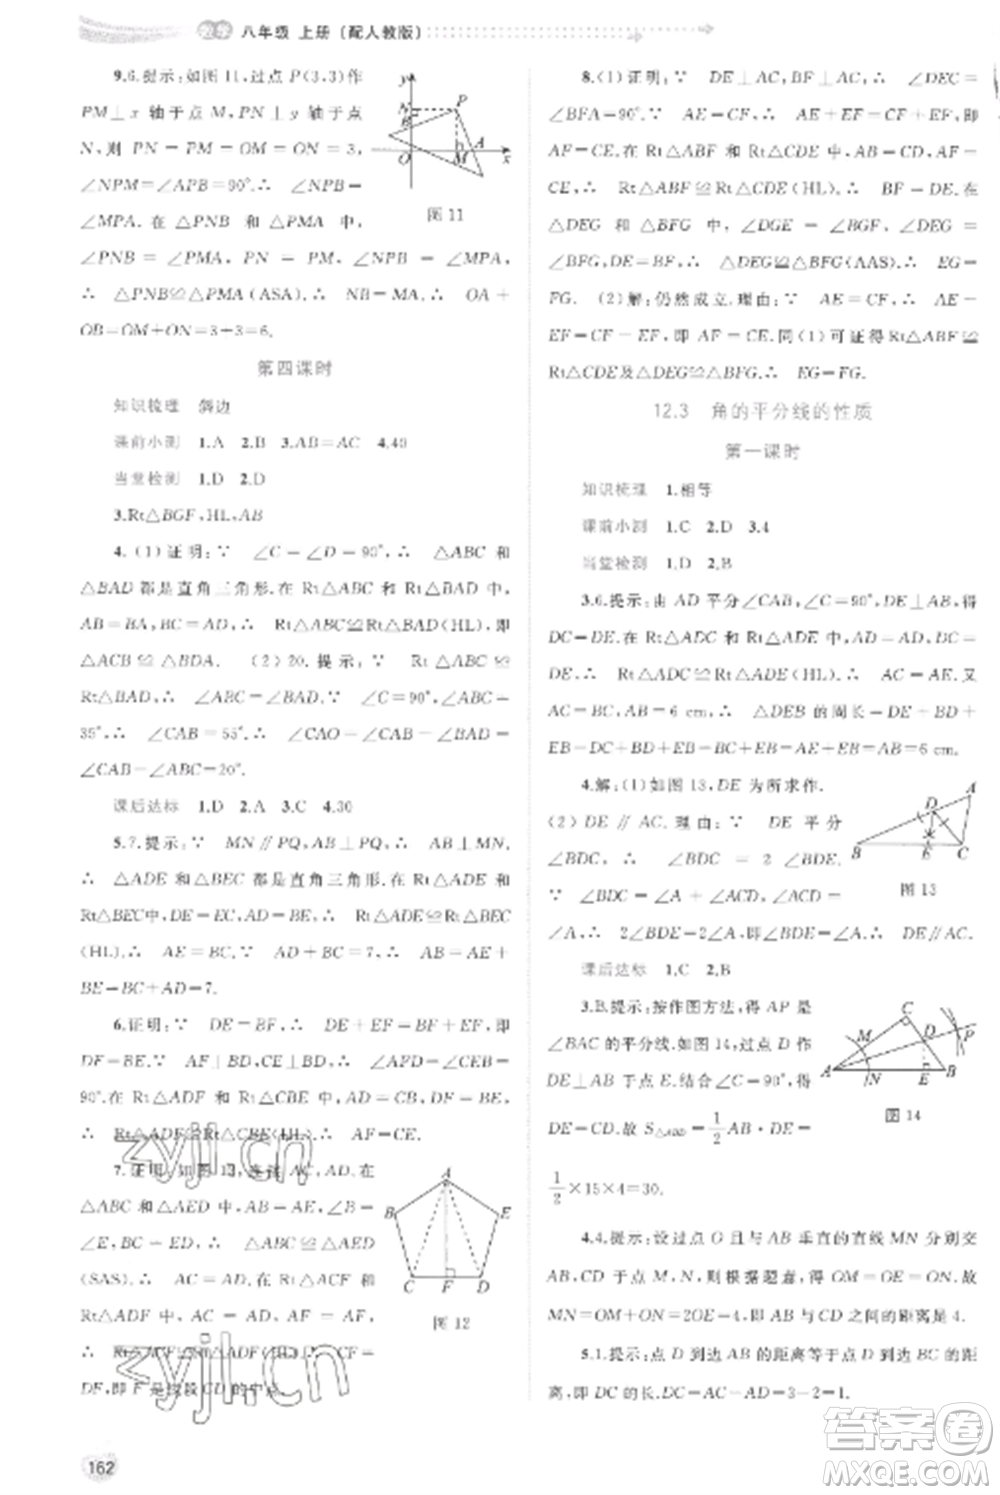 数学 八年级 上册（配人教版）
9.6.提示:如图 11,过点 P(3,3)作
PM⊥x 轴于点 M,PN⊥y 轴于点
N,则 PM=PN=OM=ON=3,
∠NPM=∠APB=90°.∴ ∠NPB=
∠MPA.在 △PNB 和 △PMA 中,
∠PNB = ∠PMA,PN = PM,∠NPB = ∠MPA,
∴ △PNB≌△PMA(ASA).∴ NB=MA.∴ OA+
OB=OM+ON=3+3=6.
y
N
B
P
A
O
M
x
图 11
第四课时
知识梳理 斜边
课前小测 1.A 2.B 3.AB=AC 4.40
当堂检测 1.D 2.D
3.Rt△BGF,HL,AB
4.(1)证明:∵ ∠C=∠D=90°,∴ △ABC 和
△BAD 都是直角三角形.在 Rt△ABC 和 Rt△BAD 中,
AB=BA,BC=AD,∴ Rt△ABC≌Rt△BAD(HL),即
△ACB ≌ △BDA. (2)20. 提示:∵ Rt△ABC ≌
Rt△BAD,∴ ∠ABC = ∠BAD = 35°.∵ ∠ABC =
35°,∴ ∠CAB = 55°.∴ ∠CAO = ∠CAB - ∠BAD=20°.
课后达标 1.D 2.A 3.C 4.30
5.7.提示:∵ MN∥PQ,AB⊥PQ,∴ AB⊥MN.
∴ △ADE 和△BEC 都是直角三角形.在 Rt△ADE 和
Rt△BEC中,DE=EC,AD=BE,∴ Rt△ADE≌Rt△BEC
(HL).∴ AE=BC.∵ AD+BC=7,∴ AB=AE+
BE=BC+AD=7.
6.证明:∵ DE=BF,∴ DE+EF=BF+EF,即
DF=BE.∵ AF⊥BD,CE⊥BD,∴ ∠AFD=∠CEB=
90°.在 Rt△ADF 和 Rt△CBE 中,AD=BC,DF=BE,
∴ Rt△ADF≌Rt△CBE(HL).∴ AF=CE.
7.证明:如图 12,连接 AC,AD.在
△ABC 和△AED 中,AB=AE,∠B=
∠E,BC=ED,∴ △ABC≌△AED
(SAS).∴ AC=AD.在 Rt△ACF 和
Rt△ADF 中,AC = AD,AF = AF,
∴ Rt△ACF≌Rt△ADF(HL).∴ CF=
DF,即 F 是线段 CD 的中点.
A
B
E
C
F
D
图 12
8.(1)证明:∵ DE⊥AC,BF⊥AC,∴ ∠DEC=
∠BFA=90°.∵ AE=CF,∴ AE+EF=CF+EF,即
AF=CE.在 Rt△ABF 和 Rt△CDE 中,AB=CD,AF=
CE,∴ Rt△ABF≌Rt△CDE(HL).∴ BF=DE.在
△DEG 和 △BFG 中,∠DEG = ∠BFG,∠EGD = ∠FGB,
DE=BF,∴ △DEG≌△BFG(AAS).∴ EG=
FG. (2)解:仍然成立.理由:∵ AE=CF,∴ AE-
EF=CF-EF,即 AF=CE.同(1)可证得 Rt△ABF≌
Rt△CDE及△DEG≌△BFG.∴ EG=FG.
12.3 角的平分线的性质
第一课时
知识梳理 1.相等
课前小测 1.C 2.D 3.4
当堂检测 1.D 2.B
3.6.提示:由 AD 平分∠CAB,∠C=90°,DE⊥AB,得
DC=DE.在 Rt△ADC 和 Rt△ADE 中,AD=AD,DC=DE,
∴ Rt△ADC≌Rt△ADE(HL).∴ AC=AE.又
AC=BC,AB=6 cm,∴ △DEB 的周长=DE+BD+
EB=DC+BD+EB=BC+EB=AC+EB=AE+EB=AB=6 cm.
4.解:(1)如图 13,DE 为所求作.
(2)DE∥AC.理由:∵ DE 平分
∠BDC,∴ ∠BDC = 2 ∠BDE.
∵ ∠BDC=∠A+∠ACD,∠ACD=
∠A,∴ 2∠BDE=2∠A,即∠BDE=∠A.∴ DE∥AC.
A
D
B
E
C
图 13
课后达标 1.C 2.B
3.B.提示:按作图方法,得 AP 是
∠BAC 的平分线.如图 14,过点 D 作
DE⊥AB 于点 E.∵ ∠C=90°,∴
DE=CD=4.故 S△ABD=1/2 AB·DE=
1/2×15×4=30.
C
M
D
P
A
N
E
B
图 14
4.4.提示:设过点 O 且与 AB 垂直的直线 MN 分别交
AB,CD 于点 M,N,则根据题意,得 OM=OE=ON,故
MN=OM+ON=2OE=4,即 AB 与 CD 之间的距离是 4.
5.1.提示:点 D 到边 AB 的距离等于点 D 到 BC 的距
离,即 DC 的长.DC=AC-DA=3-2=1.
162
zyjl.cn
zyjl.cn
答案圈
MXQE.COM